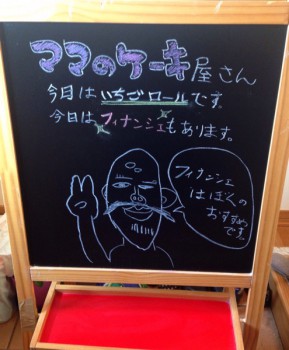 ママのケーキ屋さん
今月はいちごロールです。
今日はフィナンシェもあります。
フィナンシェ
はぼくの
おすすめ
です。